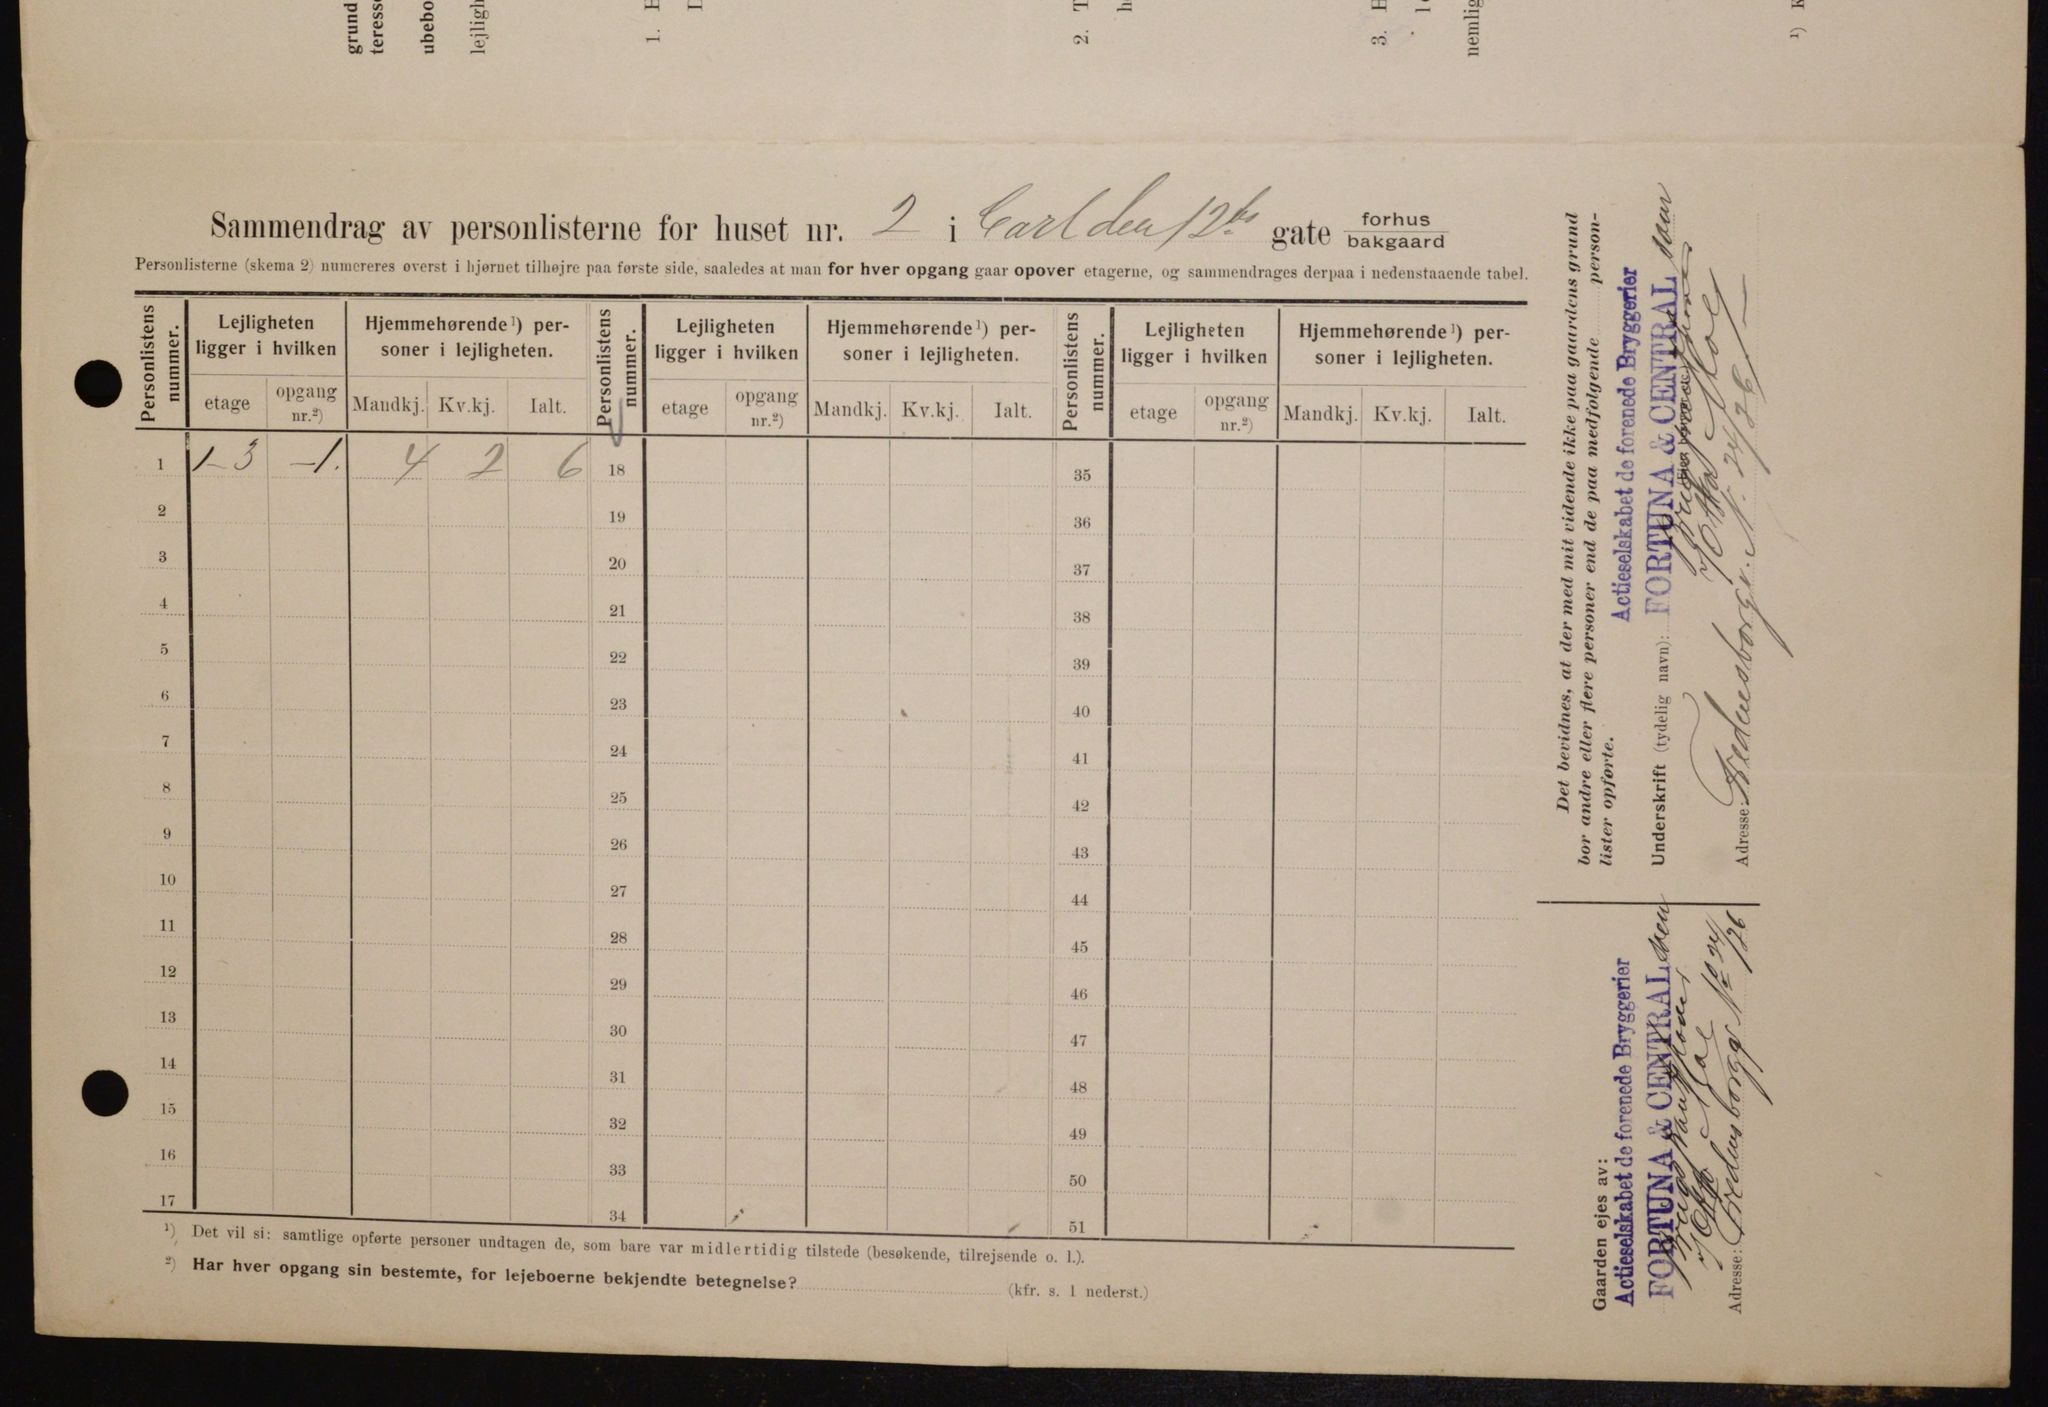 grund
teresse
ubebo
lejligh
1. H
2. T
h
3. H
nemlig
¹) K
Sammendrag av personlisterne for huset nr. 2 i Carl den 12tes gate forhus bakgaard
Personlisterne (skema 2) numereres øverst i hjørnet tilhøjre paa første side, saaledes at man for hver opgang gaar opover etagerne, og sammendrages derpaa i nedenstaaende tabel.
Personlistens nummer. Lejligheten ligger i hvilken Hjemmehørende¹) personer i lejligheten. Personlistens nummer. Lejligheten ligger i hvilken Hjemmehørende¹) personer i lejligheten. Personlistens nummer. Lejligheten ligger i hvilken Hjemmehørende¹) personer i lejligheten.
etage opgang nr.²) Mandkj. Kv.kj. Ialt. etage opgang nr.²) Mandkj. Kv.kj. Ialt. etage opgang nr.²) Mandkj. Kv.kj. Ialt.
1 1-3 -1. 4 2 6 18 35
2 19 36
3 20 37
4 21 38
5 22 39
6 23 40
7 24 41
8 25 42
9 26 43
10 27 44
11 28 45
12 29 46
13 30 47
14 31 48
15 32 49
16 33 50
17 34 51
¹) Det vil si: samtlige opførte personer undtagen de, som bare var midlertidig tilstede (besøkende, tilrejsende o. l.).
²) Har hver opgang sin bestemte, for lejeboerne bekjendte betegnelse?
(kfr. s. 1 nederst.)
Det bevidnes, at der med mit vidende ikke paa gaardens grund
bor andre eller flere personer end de paa medfølgende person-
lister opførte.
Actieselskabet de forenede Bryggerier
Underskrift (tydelig navn): FORTUNA & CENTRAL
Adresse: Fredensborgv. N. 24/26
Gaarden ejes av:
Actieselskabet de forenede Bryggerier
FORTUNA & CENTRAL
Adresse: Fredensborgv No 24/26